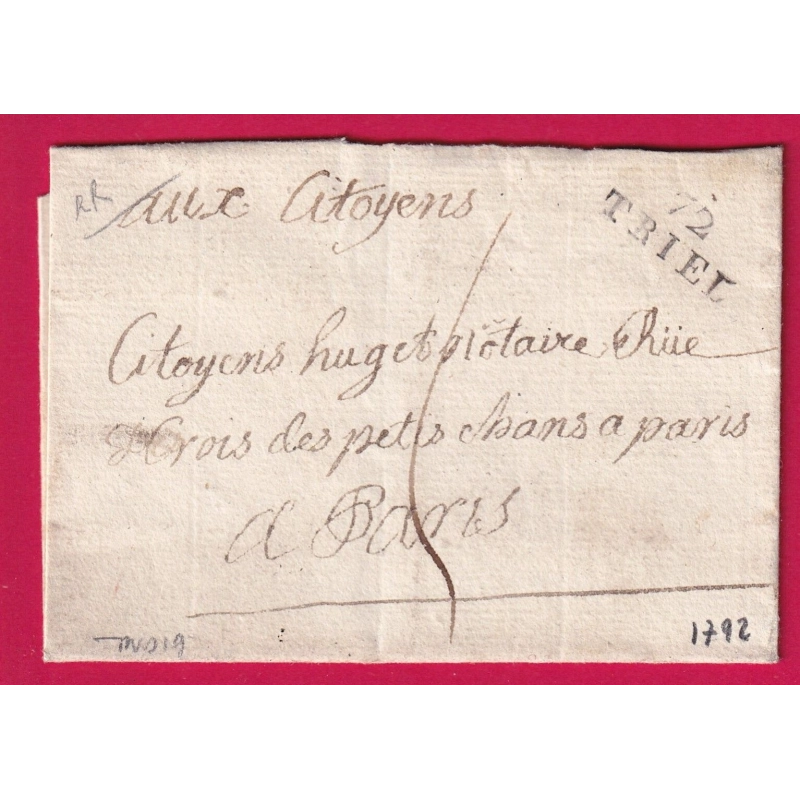 RR
aux Citoyens
72
TRIEL
Citoyens huget notaire Rüe
Crois des petis chans a paris
a Paris
1792